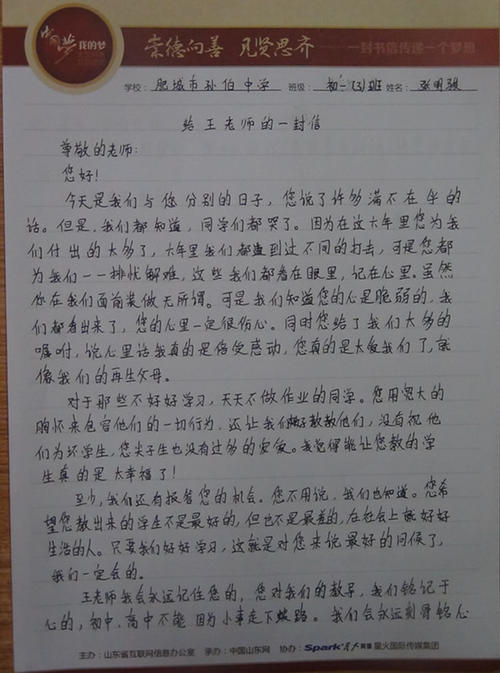 中国梦 我的梦
崇德向善 见贤思齐 一封书信传递一个梦想
学校：肥城市孙伯中学 班级：初一（3）班 姓名：张明骐
给王老师的一封信
尊敬的老师：
您好！
今天是我们与您分别的日子，您说了许多满不在乎的
话。但是，我们都知道，同学们都哭了。因为在这六年里您为我
们付出的太多了，六年里我们都遭到过不同的打击，可是您都
为我们一一排忧解难，这些我们都看在眼里，记在心里。虽然
你在我们面前装做无所谓。可是我们知道您的心是脆弱的，我
们都看出来了，您的心里一定很伤心。同时您给了我们太多的
嘱咐，说心里话我真的是倍受感动，您真的是太爱我们了，就
像我们的再生父母。
对于那些不好好学习，天天不做作业的同学。您用宽大的
胸怀来包容他们的一切行为，还让我们教教他们，没有视他
们为坏学生，您尖子生也没有过多的宠爱。我觉得能让您教的学
生真的是太幸福了！
至少，我们还有报答您的机会。您不用说，我们也知道。您希
望您教出来的学生不是最好的，但也不是最差的，在社会上能好好
生活的人。只要我们好好学习，这就是对您来说最好的问候了，
我们一定会的。
王老师我会永远记住您的，您对我们的教导，我们铭记于
心的，初中、高中不能因为小事走下坡路。我们会永远刻骨铭心
主办：山东省互联网信息办公室 承办：中国山东网 协办：Spark星火英语 星火国际传媒集团